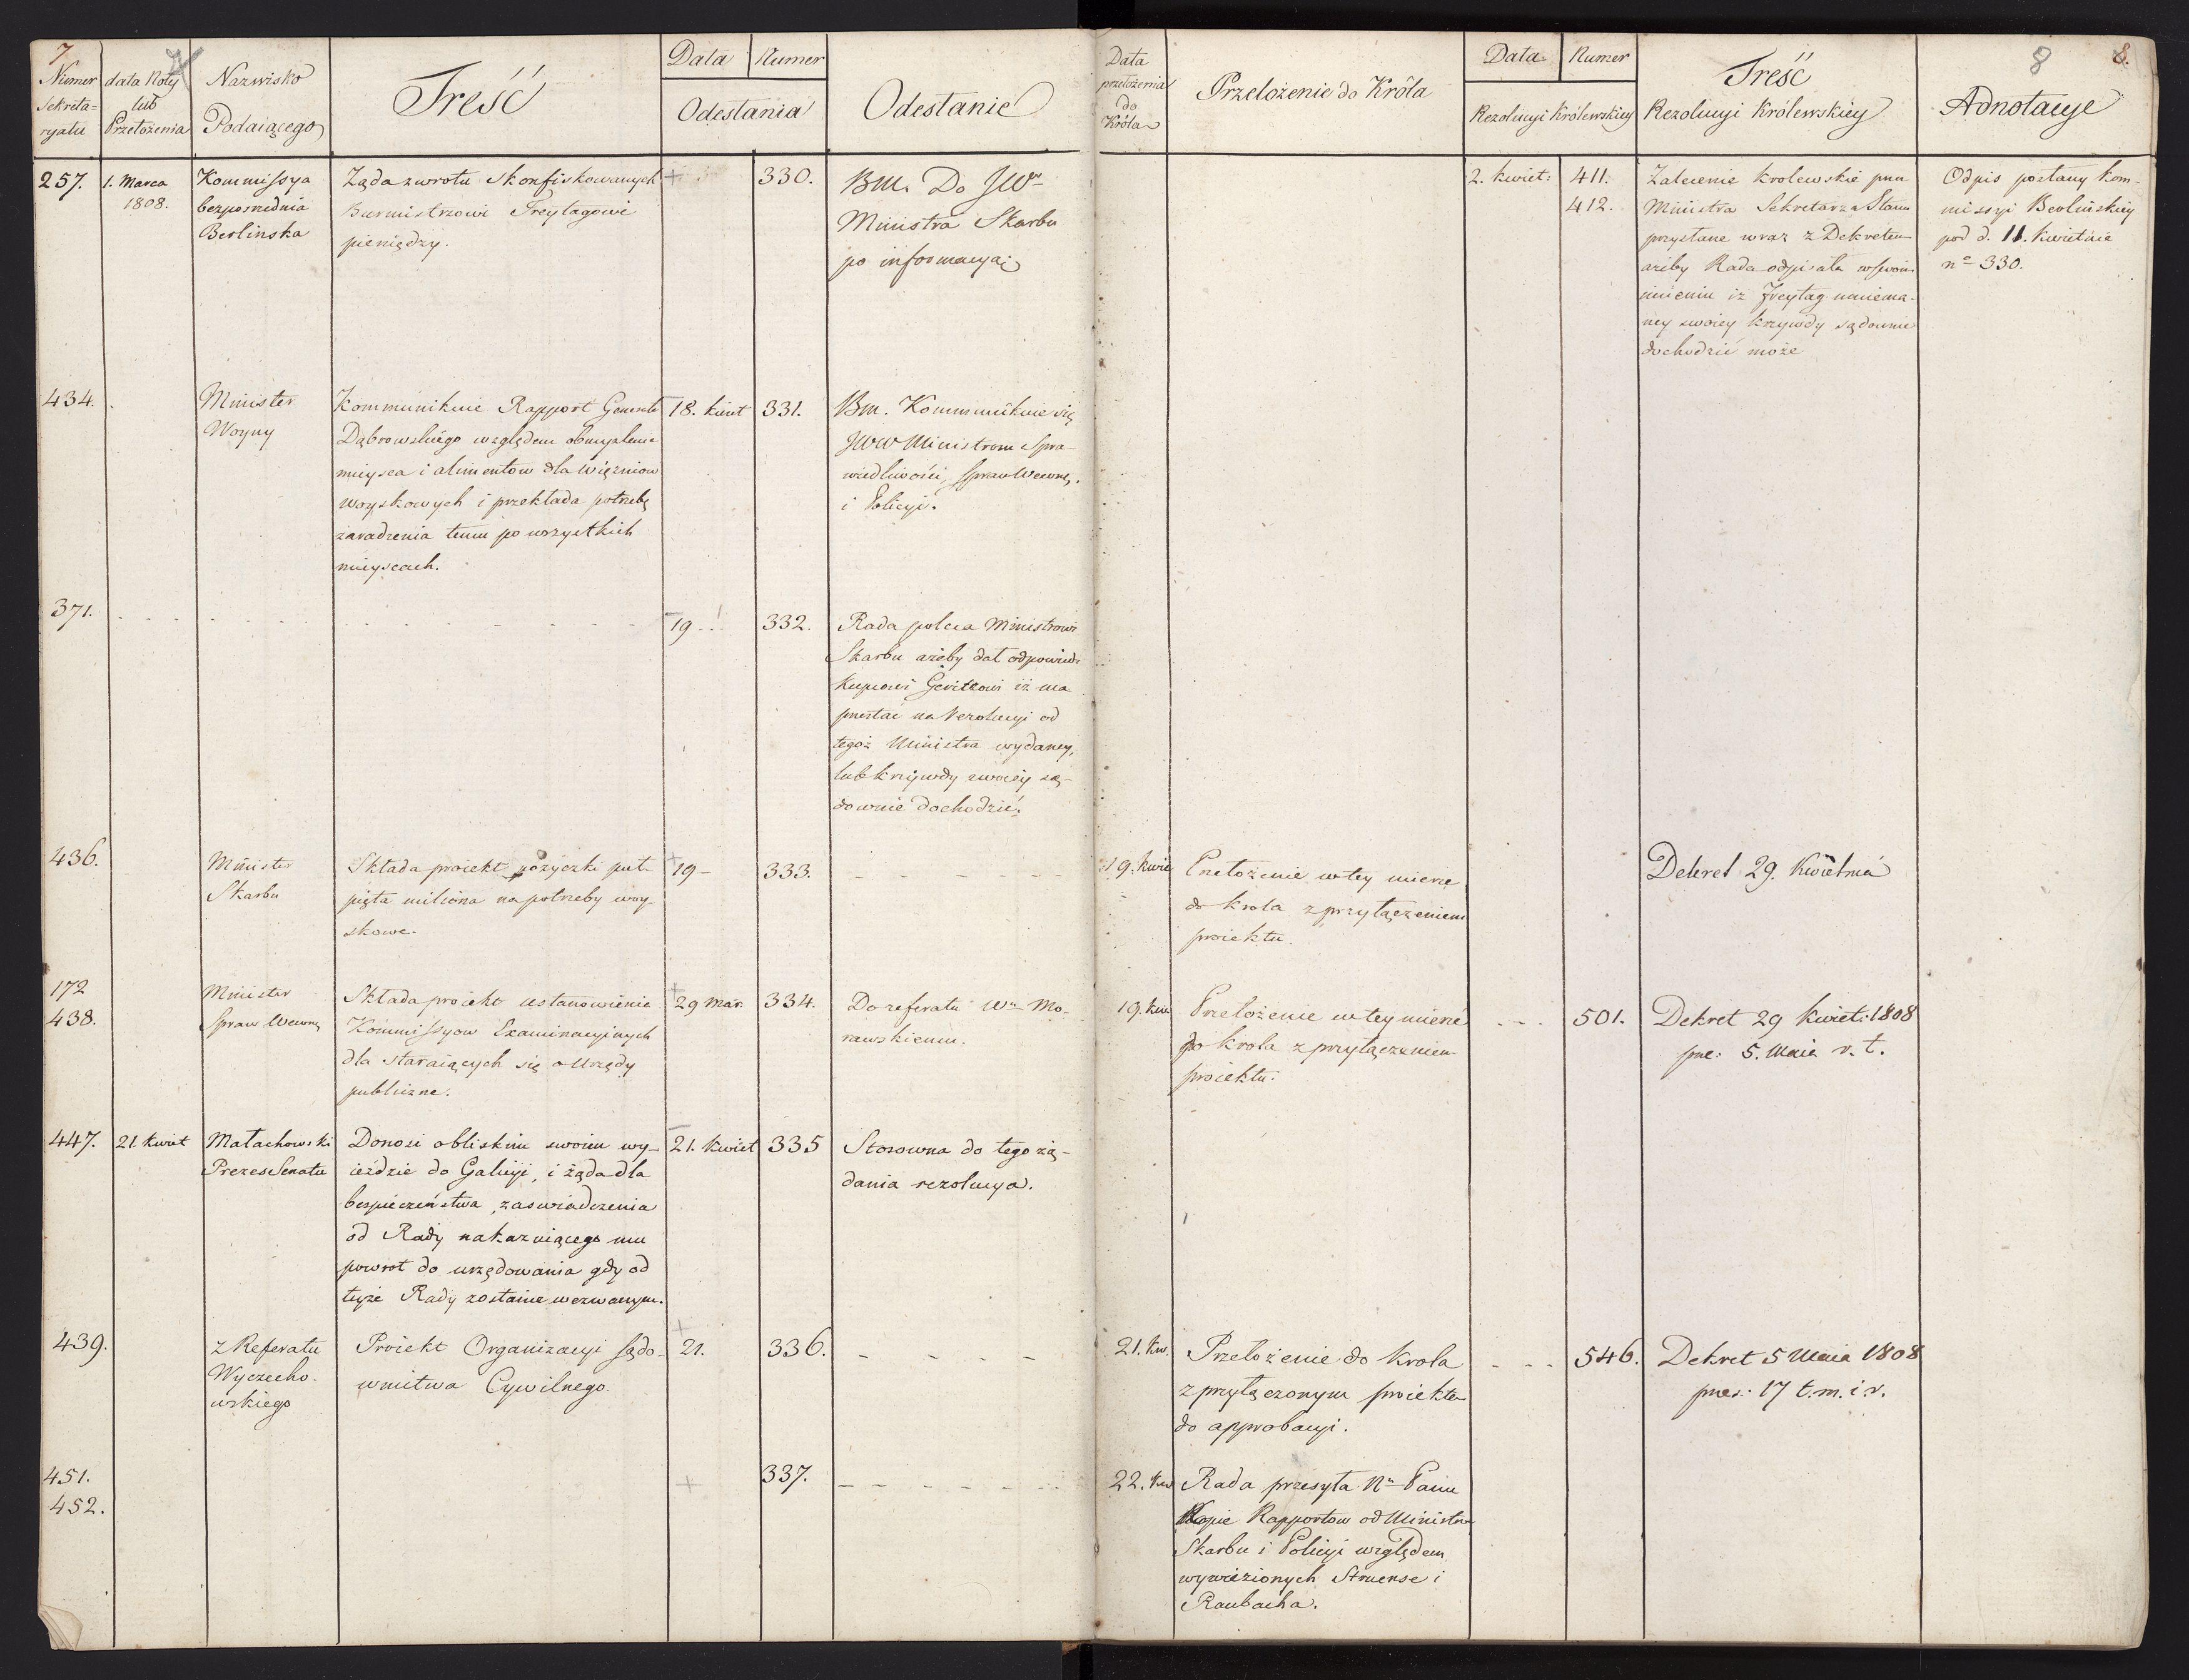 7
Numer
Sekreta=
ryatu
data Noty
lub
Przełożenia
Nazwisko
Podaiącego
Treść
Data
Numer
Odesłania
Odesłanie
Data
przełożenia
do
Króla
Przełożenie do Króla
Data
Numer
Rezolucyi Królewskiey
Treść
Rezolucyi Królewskiey
8
8.
Adnotacye
257.
1. Marca
1808.
Kommissya
bezposrednia
Berlinska
Ząda zwrotu skonfiskowanych
Burmistrzowi Freytagowi
pieniędzy.
+
330.
BM. Do JW
Ministra Skarbu
po informacyą
2. kwiet:
411.
412.
Zalecenie krolewskie przez
Ministra Sekretarza Stanu
przysłane wraz z Dekretem
ażeby Rada odpisała w swoim
imieniu iż Freytag mniema-
ney swoiey krzywdy sądownie
dochodzić może
Odpis posłany kom-
missyi Berlińskiey
pod d. 11. kwietnia
nº 330.
434.
Minister
Woyny
Kommunikuie Rapport Generała
Dąbrowskiego względem obmyslenia
mieysca i alimentow dla Więzniow
woyskowych i przekłada potrzebę
zaradzenia temu po wszystkich
mieyscach.
18. kwiet
331.
BM. Kommunikuie się
JWW Ministrom Spra-
wiedliwości, Spraw Wewnę.
i Policyi.
371.
19
332.
Rada poleca Ministrowi
Skarbu ażeby dał odpowiedz
kupcowi iż ma
przestać na Rezolucyi od
tegoż Ministra wydaney,
lub krzywdy swoiey są-
downie dochodzić.
436.
Minister
Skarbu
Składa proiekt pożyczki puł-
pięta miliona na potrzeby woy-
skowe.
+
19 -
333.
19. kwie
Przełożenie w tey mierze
do krola z przyłączeniem
proiektu.
Dekret 29. kwietnia
172
438.
Minister
Spraw Wewnę
Składa proiekt ustanowienia
Kommissyow Examinacyinych
dla staraiących się o Urzędy
publiczne.
+
29 Mar.
334.
Do referatu Wu Mo-
rawskiemu.
19. kw.
Przełożenie w tey mierze
do krola z przyłączeniem
proiektu.
501.
Dekret 29 kwiet: 1808
pre: 5. Maia r. t.
447.
21. kwiet
Małachowski
Prezes Senatu
Donosi o bliskim swoim wy-
ieździe do Galicyi, i żąda dla
bezpieczeństwa, zaswiadczenia
od Rady nakazuiącego mu
powrot do urzędowania gdy od
teyże Rady zostanie wezwanym.
21. kwiet
335
Stosowna do tego żą-
dania rezolucya.
439.
z Referatu
Wyczecho-
wskiego
Proiekt Organizacyi sądo-
wnictwa Cywilnego.
+
21.
336.
21. kw.
Przełożenie do krola
z przyłączonym proiektem
do approbacyi.
546.
Dekret 5 Maia 1808
pres: 17 t. m. i r.
451.
452.
+
337.
22. kw
Rada przesyła Nu Panu
Kopie Rapportow od Ministra
Skarbu i Policyi względem
wywiezionych Struense i
Raubacha.